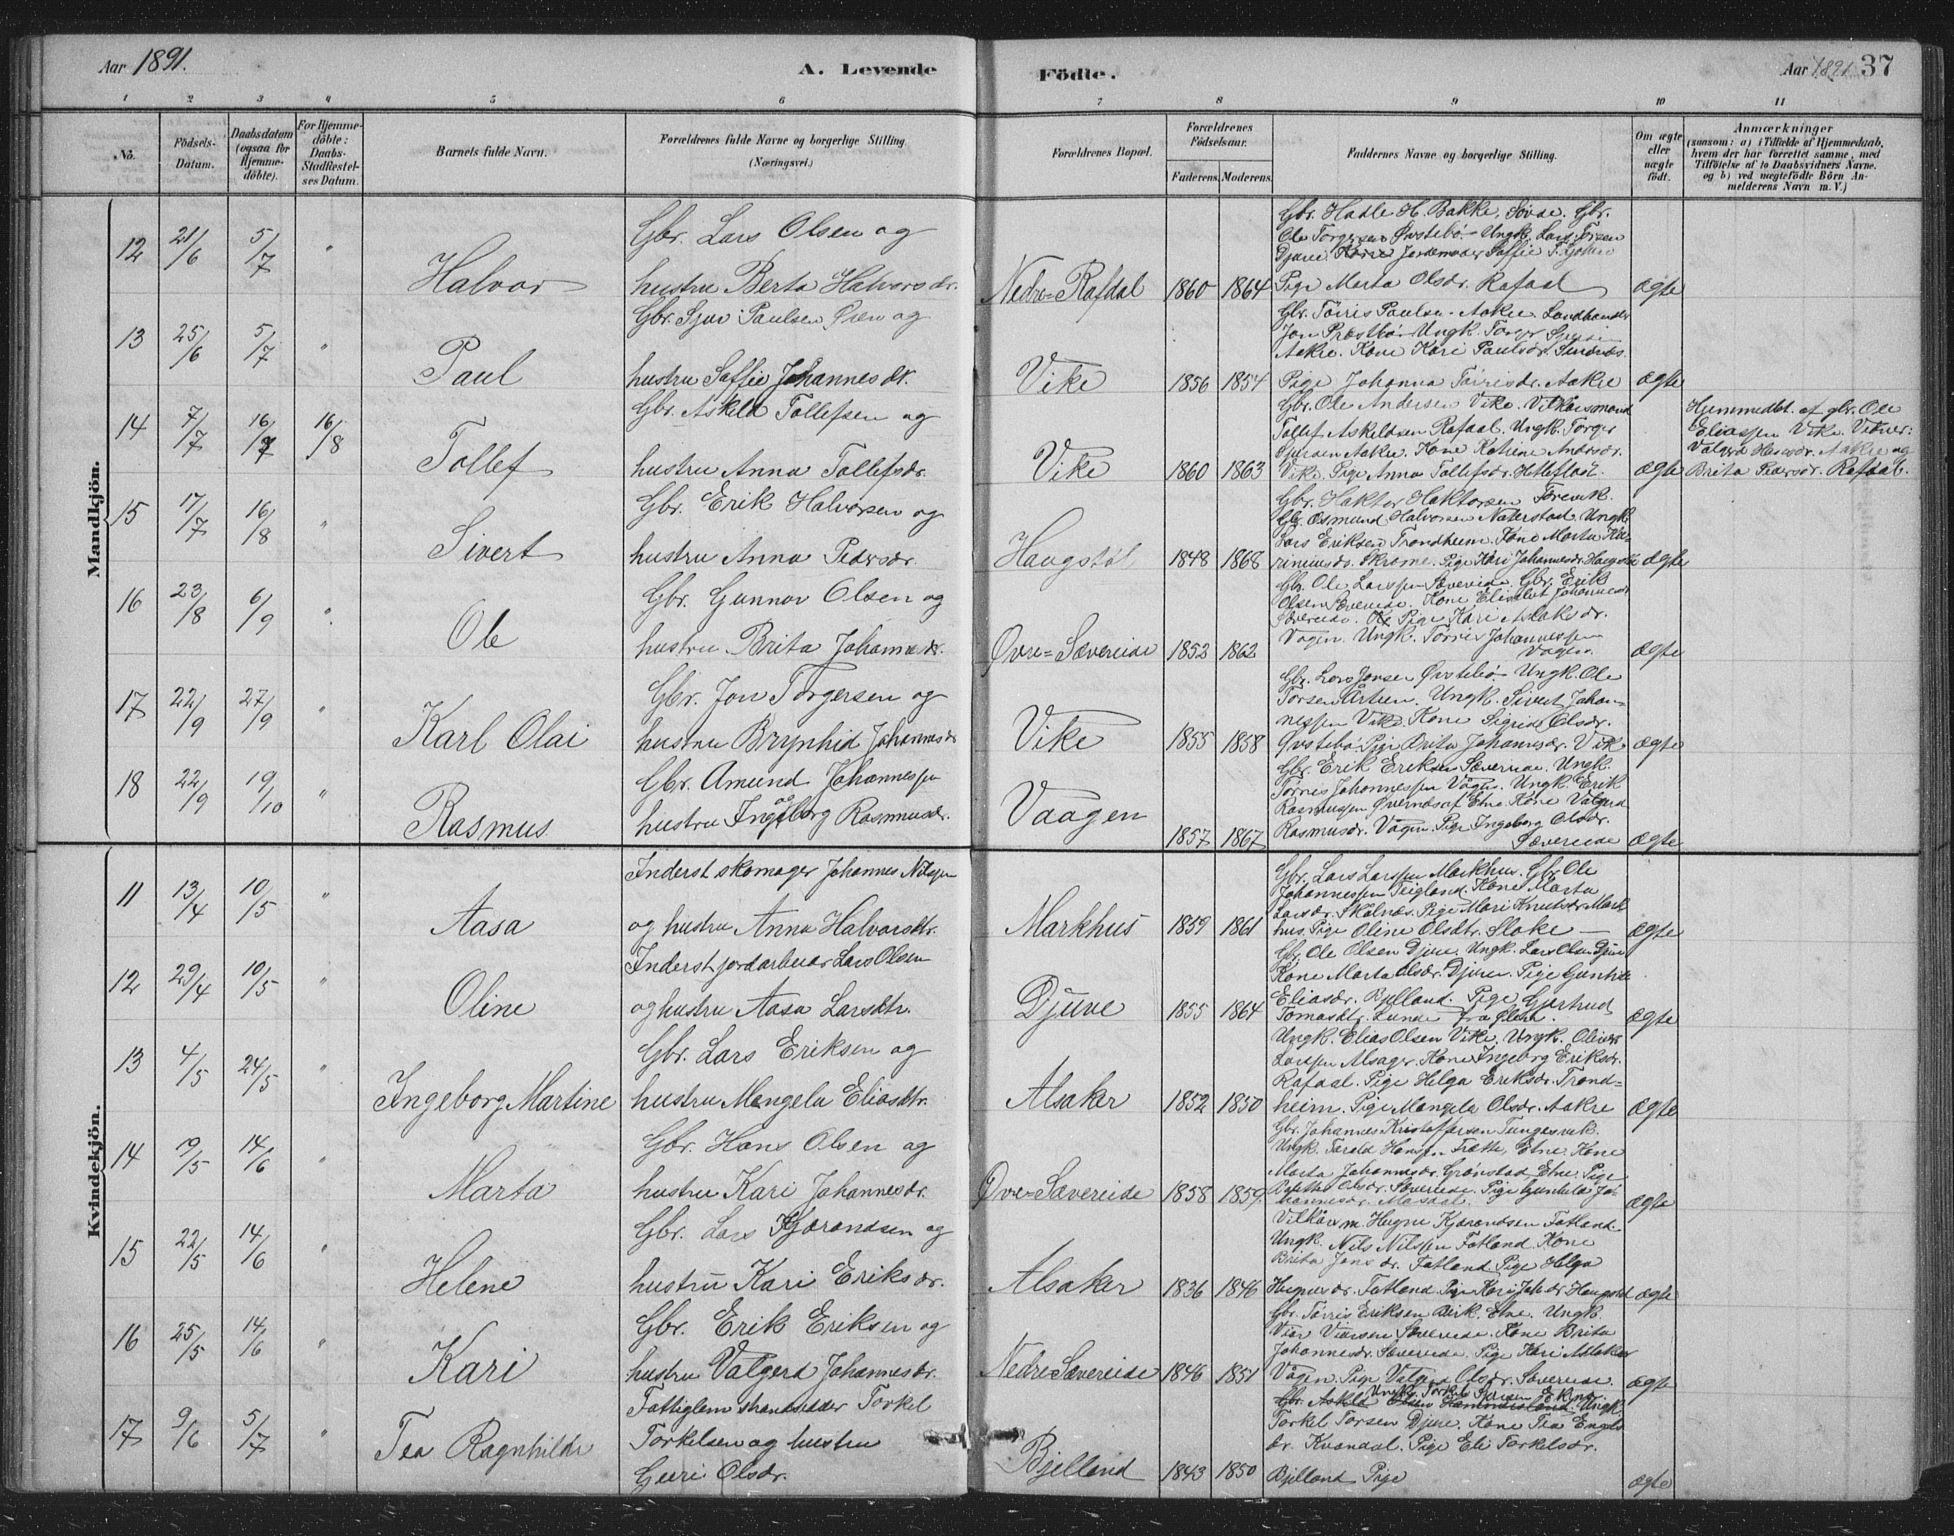 Aar 1891.
A. Levende
Födte.
Aar 1891
37
1 2 3 4 5 6 7 8 9 10 11
No.
Födsels-
Datum.
Daabsdatum
(ogsaa for
Hjemme-
döbte).
For Hjemme-
döbte:
Daabs-
Stadfæstel-
ses Datum.
Barnets fulde Navn.
Forældrenes fulde Navne og borgerlige Stilling.
(Næringsvei.)
Forældrenes Bopæl.
Forældrenes
Födselsaar.
Faderens. Moderens.
Faddernes Navne og borgerlige Stilling.
Om ægte
eller
uægte
födt.
Anmærkninger
(saasom: a) i Tilfælde af Hjemmedaab,
hvem der har forrettet samme, med
Tilföielse af to Daabsvidners Navne,
og b) ved uægtefödte Börn An-
melderens Navn m. V.)
Mandkjön.
12 21/6 5/7 "
Halvor
Gbr. Lars Olsen og
hustru Berta Halvorsdr.
Nedre=Rafdal 1860 1864
Gbr. Hadle H. Bakke,
Ole Torgersen Øvstebö. Ungk. Lars
Pige Marta Olsdr. Rafdal
ægte
13 25/6 5/7 "
Paul
Gbr. Sjur Paulsen og
hustru Saffie Johannesdr.
Vike 1856 1854
Gbr. Törris Paulsen Aakre
Aakre. Kone Kari Paulsdr.
Pige Johanna Törrisdr. Aakre
ægte
14 7/7 16/7 16/8
Tollef
Gbr. Askild Tollefsen og
hustru Anna Tollefsdr.
Vike 1860 1863
Gbr. Ole Andersen Vike. Vilkaarsmand
Tollef Askildsen Rafdal. Ungk. Torger
Sjursen Aakre. Kone Katrine Andersdr.
Vike. Pige Anna Tollefsdr.
ægte
Hjemmedbt. af gbr. Ole
Eliassen Vike. Vidner:
Valgerd Hansdr. Aakre og
Brita Pedersdr. Rafdal.
15 17/7 16/8 "
Sivert
Gbr. Erik Halvorsen og
hustru Anna Pedersdr.
Haugstöl 1848 1868
Gbr. Haktor Haktorsen
Gbr. Osmund Halvorsen Naterstad. Ungk.
Lars Eriksen Trondheim. Kone Marta
Pige Kari Johannesdr.
ægte
16 23/8 6/9 "
Ole
Gbr. Gunnar Olsen og
hustru Brita Johannesdr.
Øvre=Sævereide 1852 1862
Gbr. Ole Larssen Sævereide. Gbr. Erik
Olsen Sævereide. Kone Elisabet Johannesdr.
Sævereide. Pige Kari Aslaksdr.
Vågen. Ungk. Törris Johannessen
Vågen.
ægte
17 22/9 27/9 "
Karl Olai
Gbr. Jon Torgersen og
hustru Brynhild Johannesdr.
Vike 1855 1858
Gbr. Lars Jonsen Øvstebö Ungk. Ole
Torsen Ungk. Sivert Johan-
nessen Vike. Kone Sigrid Olsdr.
Øvstebö. Pige Brita Johannesdr. Vike
ægte
18 22/9 19/10 "
Rasmus
Gbr. Amund Johannessen
hustru Ingeborg Rasmusdr.
Vaagen 1857 1867
Gbr. Erik Eriksen Sævereide. Ungk.
Törris Johannessen Vågen. Ungk. Erik
Rasmussen Øvernæs af Etne. Kone Valgerd
Rasmusdr. Vågen. Pige Ingeborg Olsdr.
Sævereide
ægte
Kvindekjön.
11 13/4 10/5 "
Aasa
Inderst skomager Johannes Nilssen
og hustru Anna Halvorsdtr.
Markhus 1859 1861
Gbr. Lars Larssen Markhus. Gbr. Ole
Johannessen Teigland. Kone Marta
Larsdr. Skålnæs. Pige Mari Knutsdr. Mark
hus. Pige Oline Olsdtr.
ægte
12 29/4 10/5 "
Oline
Inderst jordarbeider Lars Olsen
og hustru Aasa Larsdtr.
Djuve 1855 1864
Gbr. Ole Olsen Djuve. Ungk. Lars Olsen Djuve
Kone Marta Olsdr. Djuve. Pige Gunhilde
Eliasdr. Bjelland. Pige Gjertrud
Tomasdtr. Lunde fra
ægte
13 4/5 24/5 "
Ingeborg Martine
Gbr. Lars Eriksen og
hustru Mangela Eliasdtr.
Alsaker 1852 1850
Ungk. Elias Olsen Vike. Ungk. Oliver
Larssen Alsager. Kone Ingeborg Eriksdr.
Rafdal. Pige Helga Eriksdr. Trond=
heim. Pige Mangela Olsdr. Aakre
ægte
14 19/5 14/6 "
Marta
Gbr. Hans Olsen og
hustru Kari Johannesdr.
Øvre=Sævereide 1858 1859
Gbr. Johannes Kristoffersen Tungesvik.
Ungk. Etne. Kone
Marta Johannesdr. Grønstad Etne. Pige
Olsdr. Sævereide. Pige Gunhilda Jo-
hannesdr.
ægte
15 22/5 14/6 "
Helene
Gbr. Lars Kjærandsen og
hustru Kari Eriksdr.
Alsaker 1836 1846
Vilkårsm. Hugne Kjærandsen Fatland.
Ungk. Nils Nilssen Fatland. Kone
Brita Jansdr. Fatland. Pige Helga
Hugnesdr. Fatland. Pige Kari
ægte
16 25/5 14/6 "
Kari
Gbr. Erik Eriksen og
hustru Valgerd Johannesdr.
Nedre Sævereide 1846 1851
Gbr. Törris Eriksen Etne. Ungk.
Sævereide. Kone Brita
Johannesdr. Sævereide. Pige Kari
Vågen. Pige Olsdr. Sævereide
ægte
17 9/6 5/7 "
Tea Ragnhilde
Fattiglem strandsidder Torkel
Torkelsen og hustru
Guri Olsdr.
Bjelland 1843 1850
Gbr. Askild Ungk.
Torkel Torsen Djuve. Kone Tea
dr. Kvandal. Pige Eli Torkelsdr.
Bjelland Pige
ægte